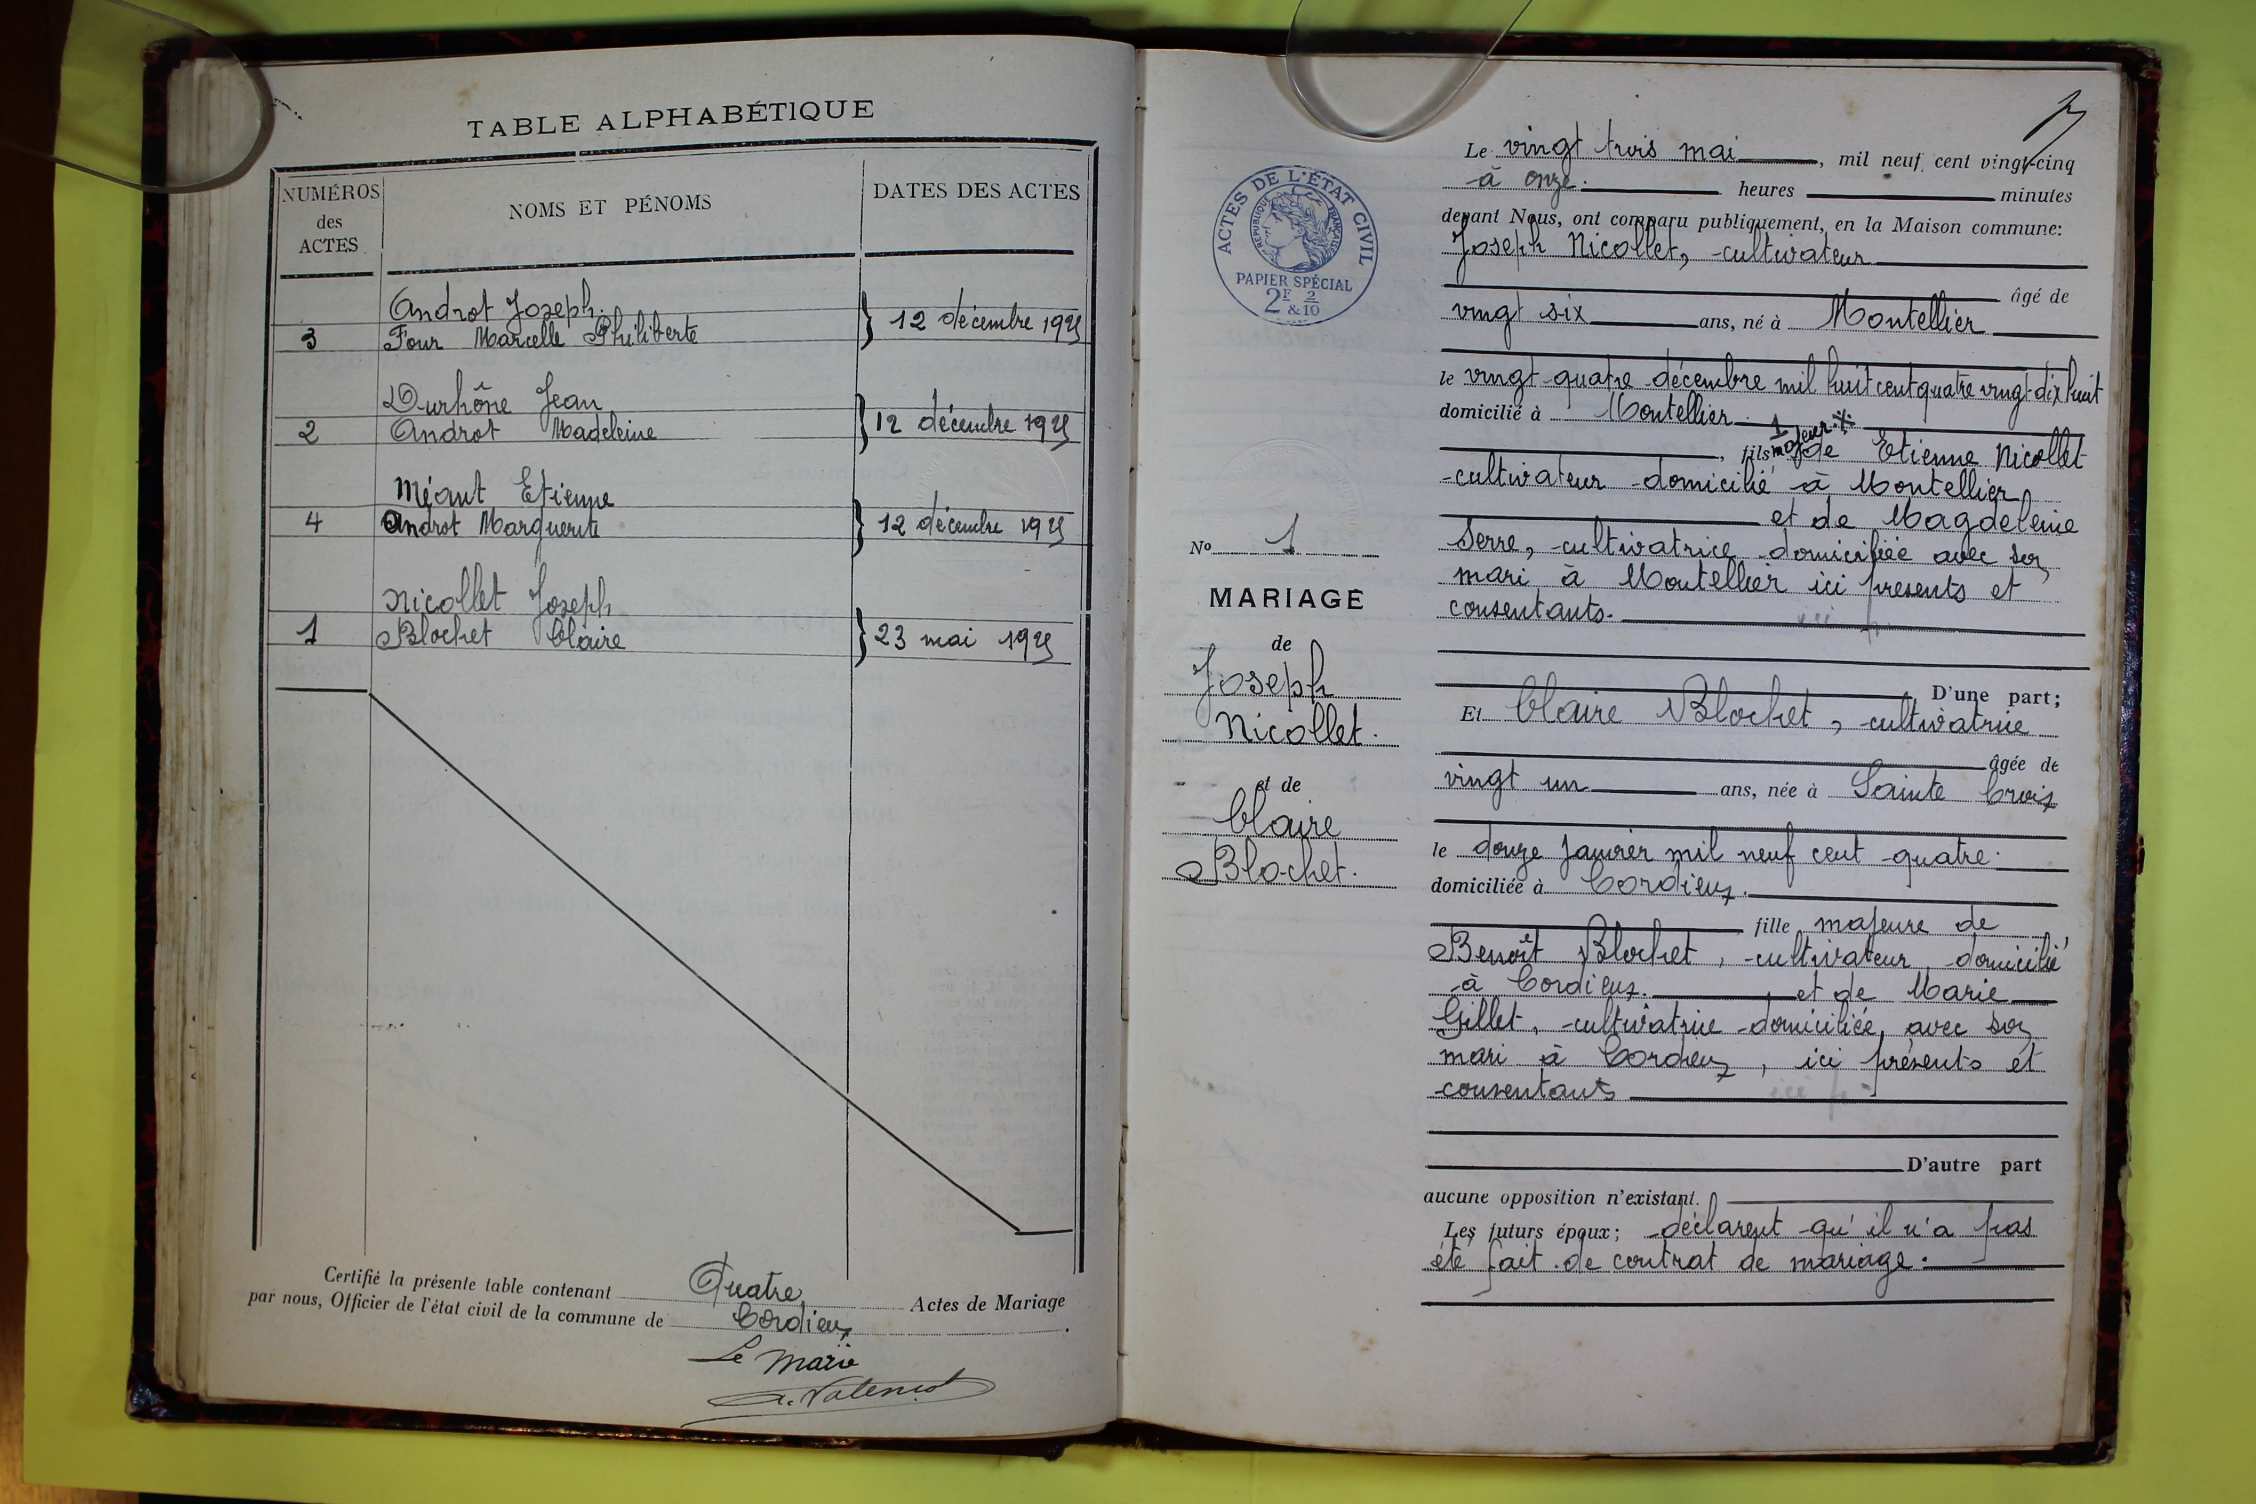 TABLE ALPHABÉTIQUE
NUMÉROS des ACTES
NOMS ET PÉNOMS
DATES DES ACTES
Androt Joseph.
3 Four Marcelle Philiberte } 12 décembre 1925
Durhône Jean
2 Androt Madeleine } 12 décembre 1925
Méant Etienne
4 Androt Marguerite } 12 décembre 1925
Nicollet Joseph
1 Blochet Claire } 23 mai 1925
Certifié la présente table contenant Quatre Actes de Mariage
par nous, Officier de l'état civil de la commune de Cordieux.
Le Maire
ACTES DE L'ÉTAT CIVIL
RÉPUBLIQUE FRANÇAISE
PAPIER SPÉCIAL
2F & 2/10
No 1
MARIAGE
de
Joseph
Nicollet.
et de
Claire
Blochet.
Le vingt trois mai, mil neuf cent vingt-cinq
à onze. heures minutes
devant Nous, ont comparu publiquement, en la Maison commune:
Joseph Nicollet, cultivateur
âgé de
vingt six ans, né à Montellier
le vingt quatre décembre mil huit cent quatre vingt dix huit
domicilié à Montellier
1 majeur
, fils de Etienne Nicollet
cultivateur domicilié à Montellier
et de Magdeleine
Serre, cultivatrice domiciliée avec son
mari à Montellier ici présents et
consentants.
D'une part;
Et Claire Blochet, cultivatrice
âgée de
vingt un ans, née à Sainte Croix
le douze janvier mil neuf cent quatre.
domiciliée à Cordieux.
fille majeure de
Benoît Blochet, cultivateur domicilié
à Cordieux. et de Marie
Gillet, cultivatrice domiciliée, avec son
mari à Cordieux, ici présents et
consentants
D'autre part
aucune opposition n'existant.
Les futurs époux; déclarent qu'il n'a pas
été fait de contrat de mariage.